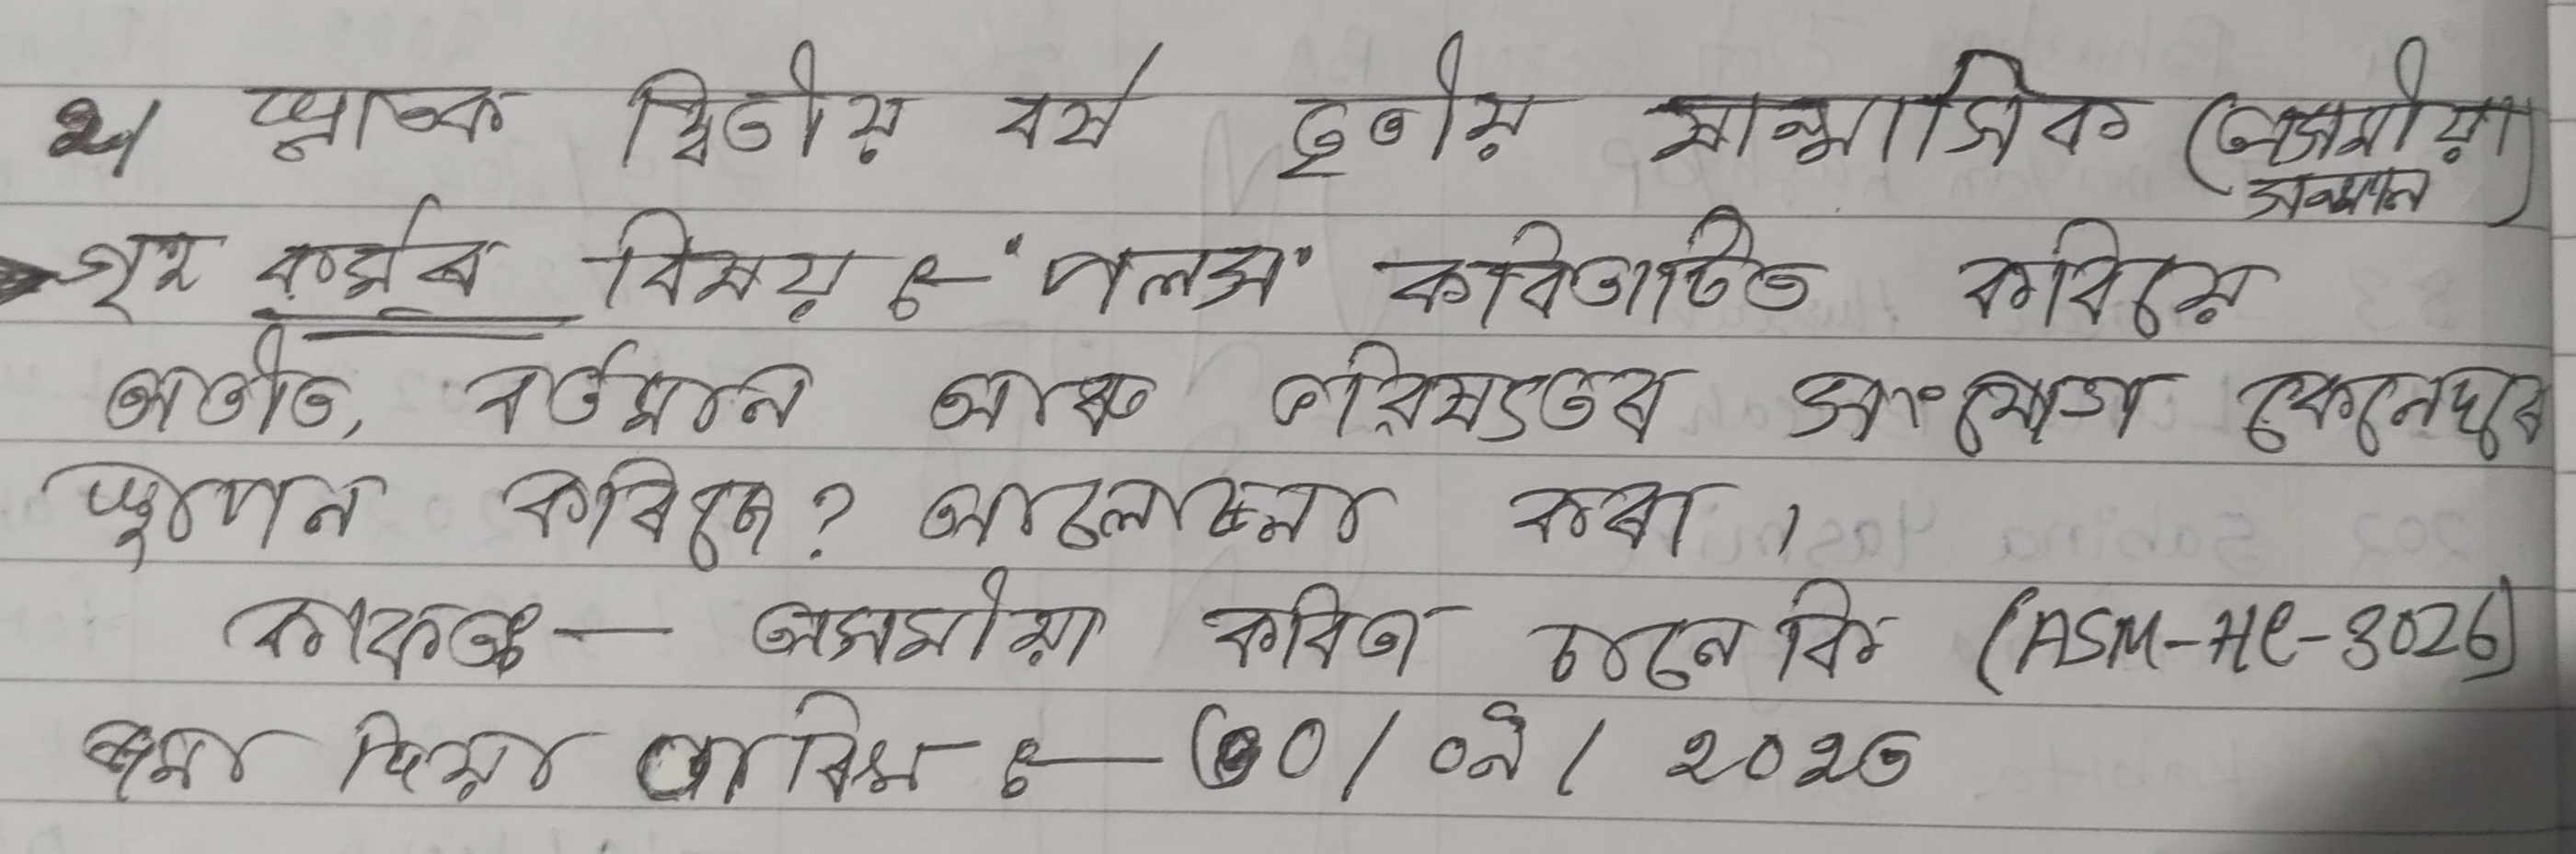 ২। স্নাতক দ্বিতীয় বৰ্ষ তৃতীয় ষান্মাসিক (অসমীয়া
সন্মান)
গৃহ কৰ্মৰ বিষয়ঃ- 'পলস' কবিতাটিত কবিয়ে
অতীত, বৰ্তমান আৰু ভৱিষ্যতৰ সংযোগ কেনেদৰে
স্থাপন কৰিছে? আলোচনা কৰা।
কাকত — অসমীয়া কবিতা চানেকি (ASM-HC-3026)
জমা দিয়া তাৰিখ ঃ— (30/ ০৯ / ২০২৩